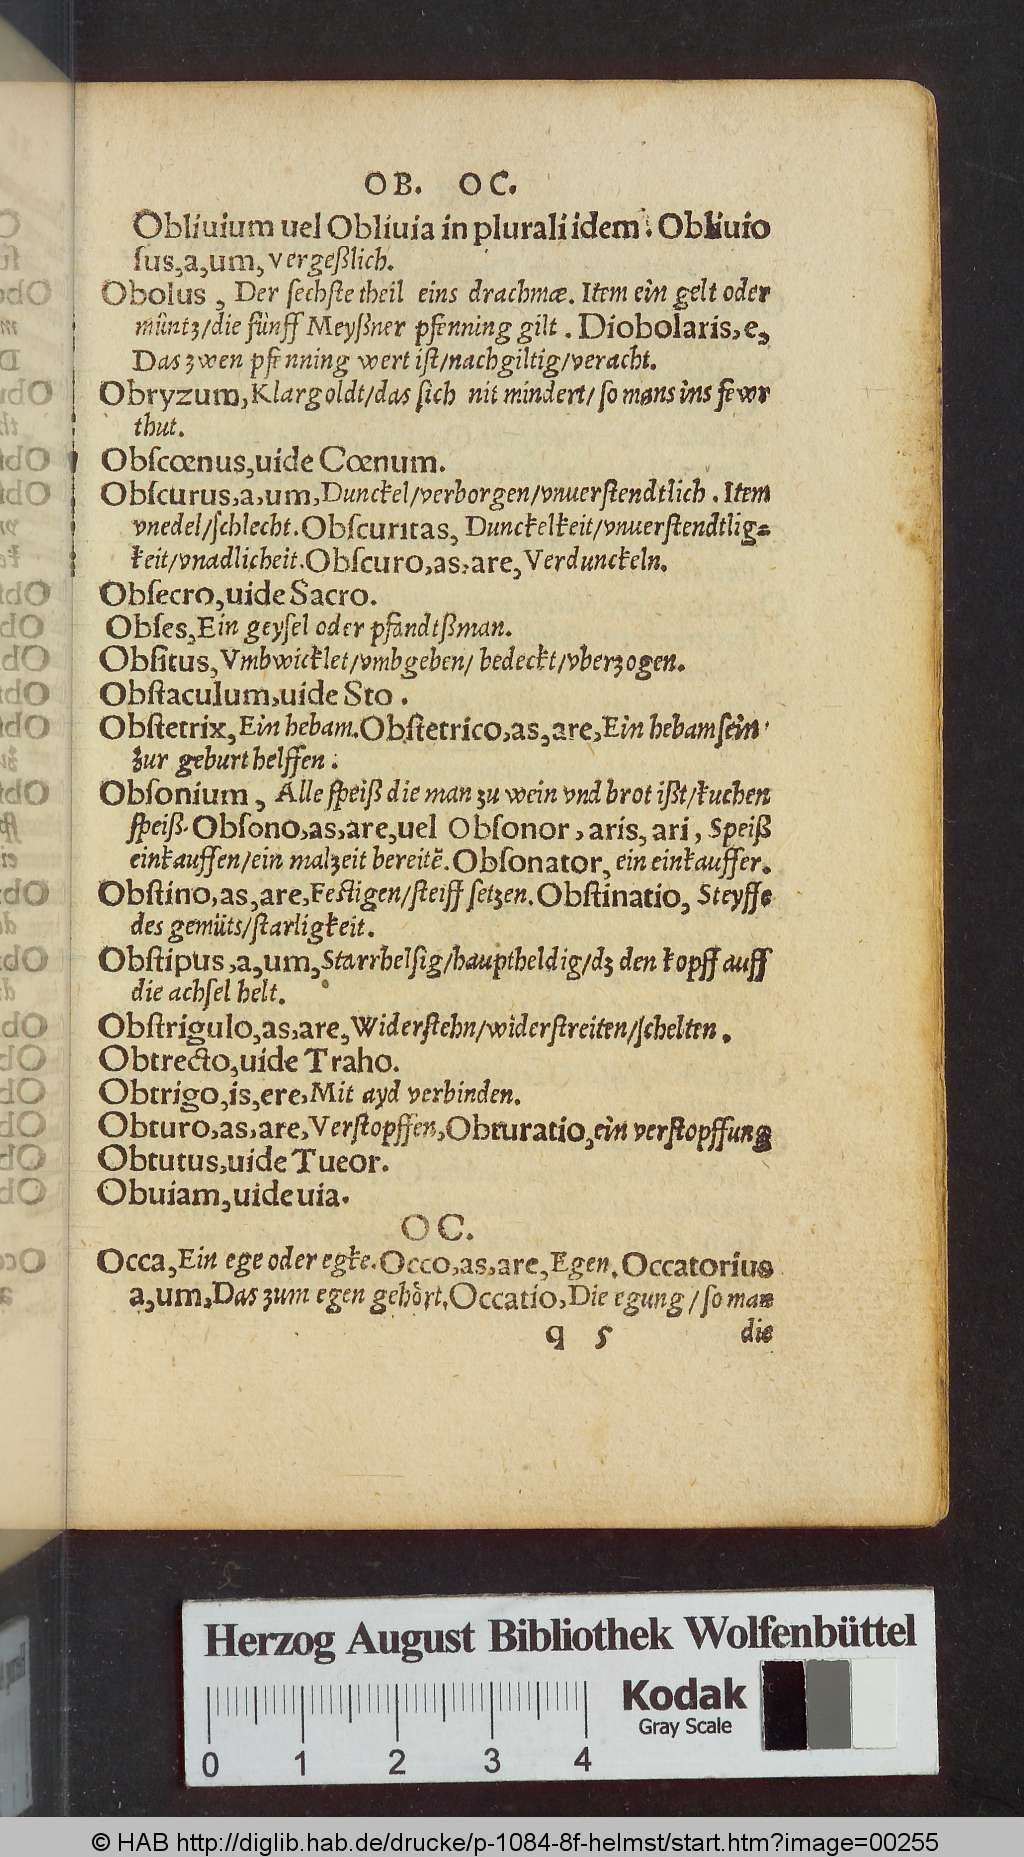 OB. OC.
Obliuium uel Obliuia in plurali idem. Obliuio
sus,a,um, vergeßlich.
Obolus, Der sechste theil eins drachmæ. Item ein gelt oder
müntz/die fünff Meyßner pfenning gilt. Diobolaris,e,
Das zwen pfenning wert ist/nachgiltig/veracht.
Obryzum, Klargoldt/das sich nit mindert/so mans ins fewr
thut.
Obscœnus,uide Cœnum.
Obscurus,a,um, Dunckel/verborgen/vnuerstendtlich. Item
vnedel/schlecht. Obscuritas, Dunckelkeit/vnuerstendtlig=
keit/vnadlicheit. Obscuro,as,are, Verdunckeln.
Obsecro,uide Sacro.
Obses, Ein geysel oder pfandtßman.
Obsitus, Vmbwicklet/vmbgeben/bedeckt/vberzogen.
Obstaculum,uide Sto.
Obstetrix, Ein hebam. Obstetrico,as,are, Ein hebam sein
zur geburt helffen.
Obsonium, Alle speiß die man zu wein vnd brot ißt/kuchen
speiß. Obsono,as,are,uel Obsonor, aris, ari, Speiß
einkauffen/ein malzeit bereitē. Obsonator, ein einkauffer.
Obstino,as,are, Festigen/steiff setzen. Obstinatio, Steyffe
des gemüts/starligkeit.
Obstipus,a,um, Starrhelsig/hauptheldig/dz den kopff auff
die achsel helt.
Obstrigulo,as,are, Widerstehn/widerstreiten/schelten.
Obtrecto,uide Traho.
Obtrigo,is,ere, Mit ayd verbinden.
Obturo,as,are, Verstopffen, Obturatio, ein verstopffung
Obtutus,uide Tueor.
Obuiam,uide uia.
OC.
Occa, Ein ege oder egke. Occo,as,are, Egen. Occatorius
a,um, Das zum egen gehört. Occatio, Die egung/so man
q 5 die
Herzog August Bibliothek Wolfenbüttel
Kodak
Gray Scale
0 1 2 3 4
© HAB http://diglib.hab.de/drucke/p-1084-8f-helmst/start.htm?image=00255